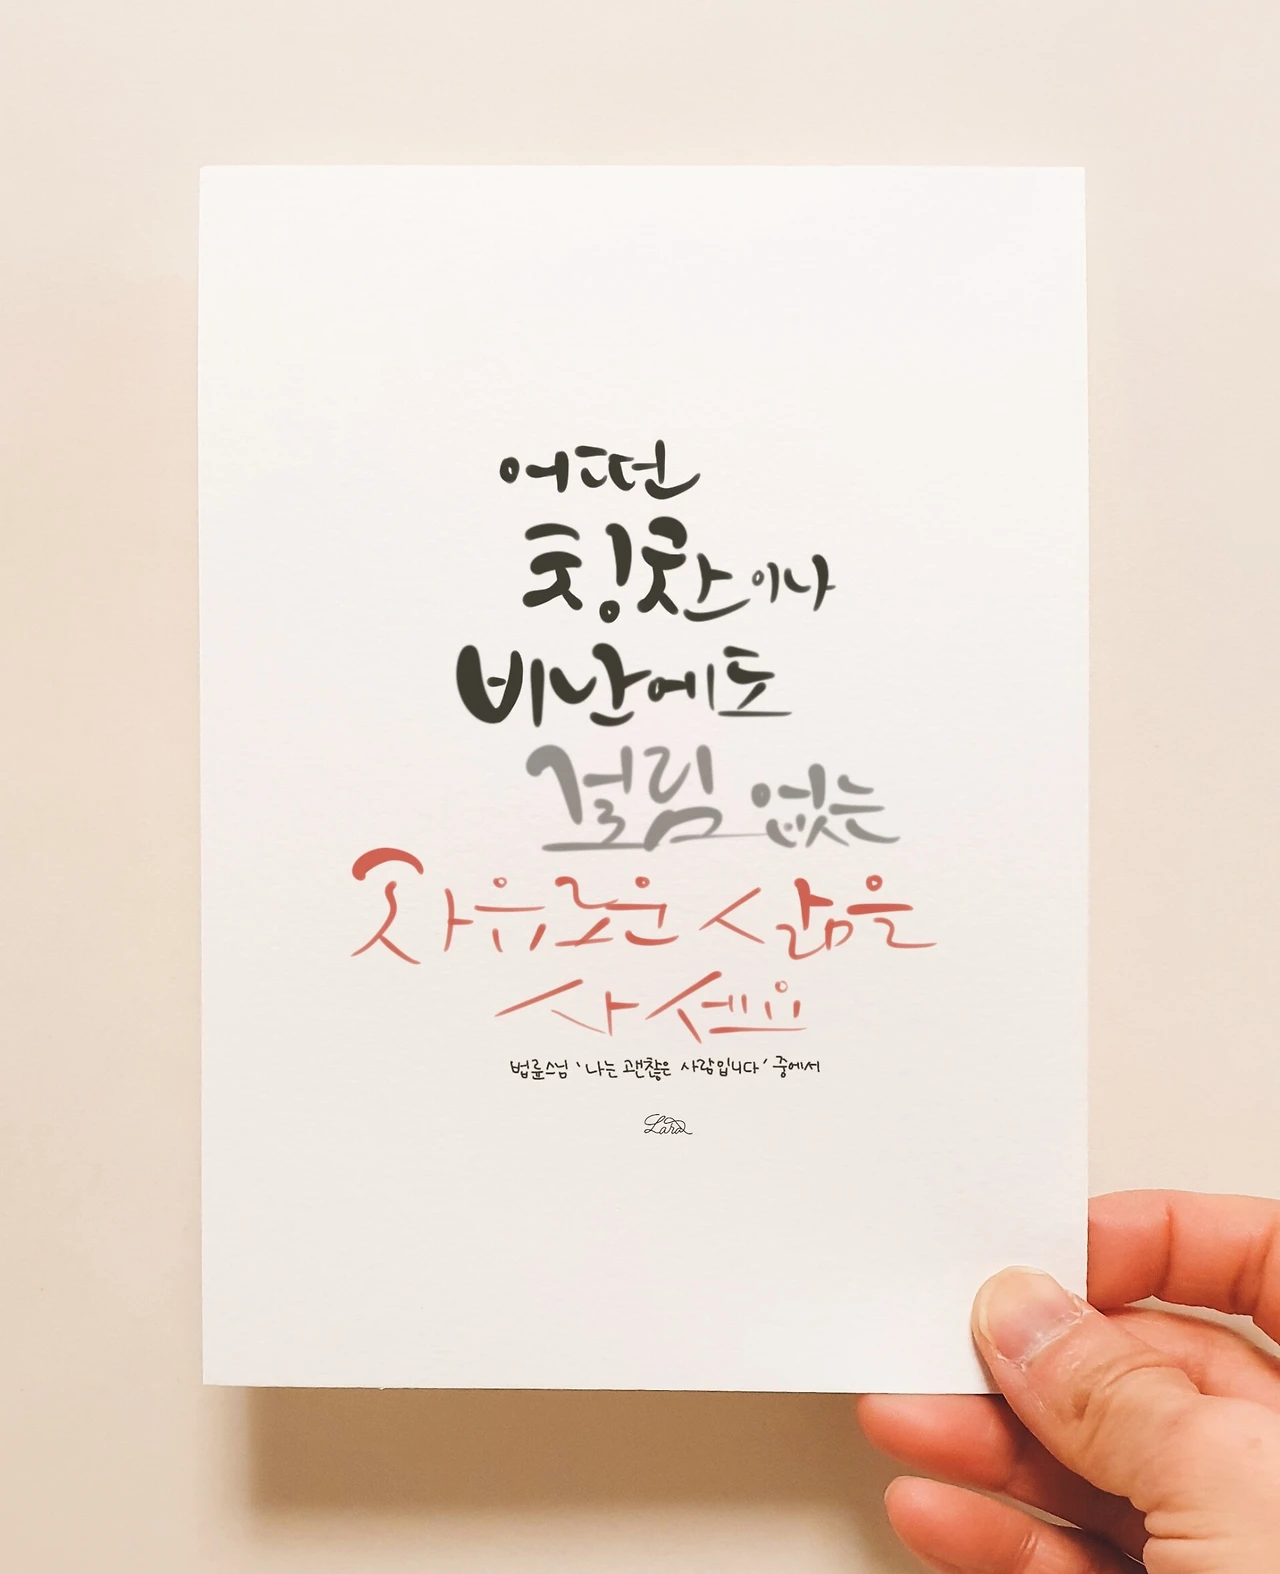 어떤
칭찬이나
비난에도
걸림 없는
자유로운 삶을
사세요
법륜스님 '나는 괜찮은 사람입니다' 중에서
Lara